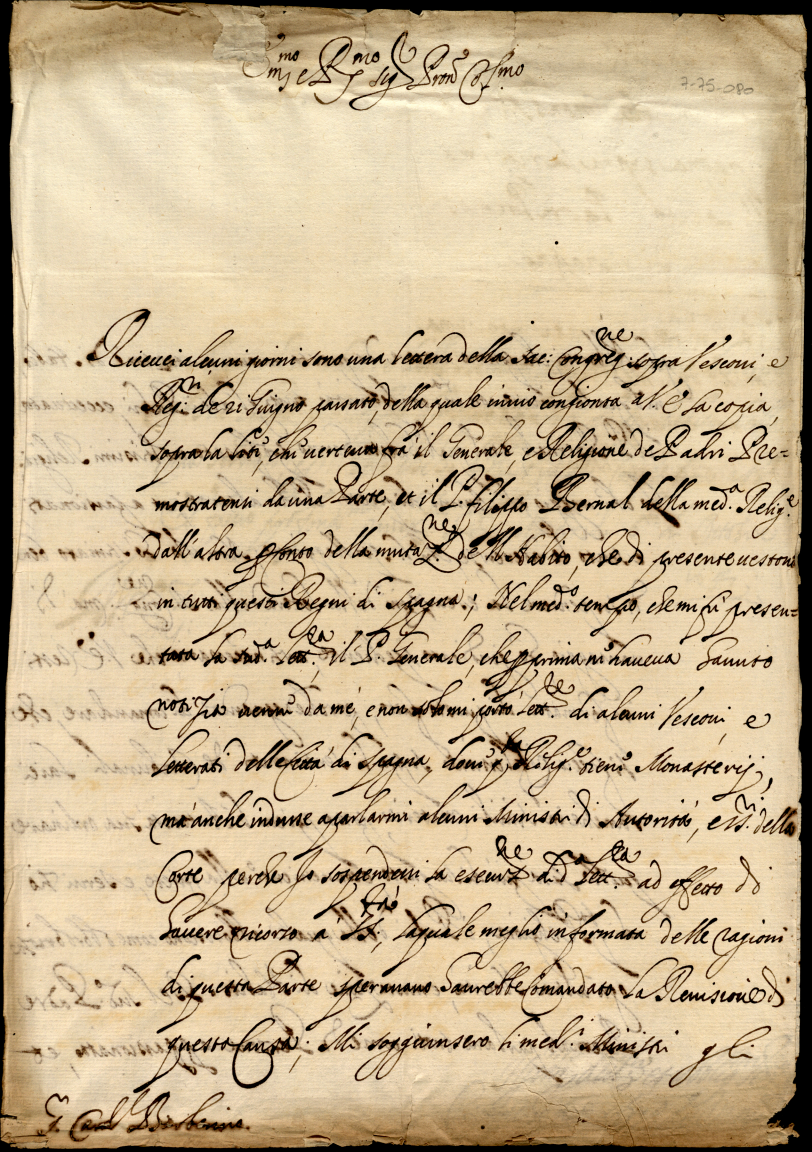 Em.mo e R.mo Sig.r Pron Col.mo
7-75-080
Riceuei alcuni giorni sono una lettera della Sac: Congreg.ne sopra Vescoui, e
Reg.ri de 21 Giugno passato, della quale inuio congionta a V. E. la copia,
sopra la lite, che uerteua frà il Generale, e Religione de Padri Pre=
mostratensi da una Parte, et il P. Filippo Bernal della med.a Relig.e
dall'altra per conto della mutaz.ne dell'Habito, che di presente uestono
in tutti questi Regni di Spagna; Nel med.o tempo, che mi fù presen=
tata la sud.a lett.ra, il P. Generale, che prima n'haueua hauuto
notizia uenne da me, e non solo mi portò lett.re di alcuni Vescoui, e
letterati delle Città di Spagna, doue la Relig.e tiene Monasterij,
mà anche indusse a parlarmi alcuni Ministri di Autorità, e SS.ri della
Corte perche Io sospendessi la esecuz.ne di d.a lett.ra ad effetto di
hauere ricorso à S. S.tà, la quale meglio informata delle ragioni
di questa Parte sperauano haurebbe comandato la Reuisione di
questa Causa; Mi soggiunsero li med.i Ministri gli
S.r Card.l Barberino.